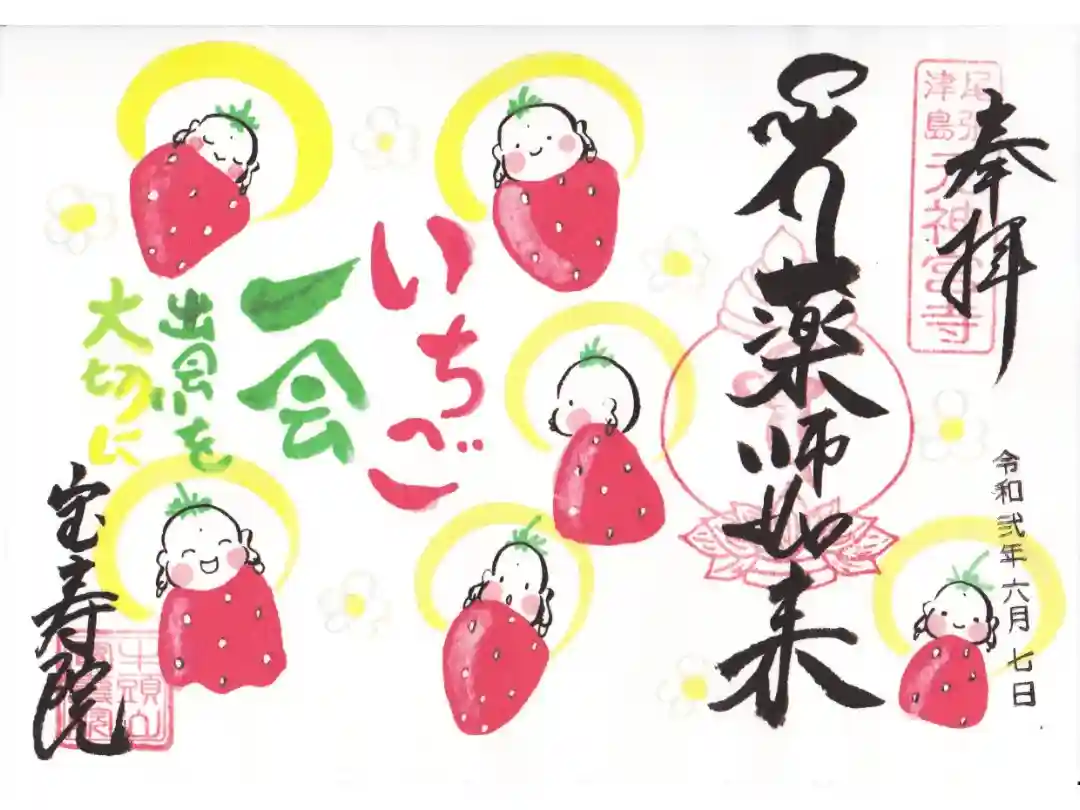 奉拝
尾張
津島
元神宮寺
令和弐年六月七日
薬師如来
いちご
一会
出会いを
大切に
宝寿院
牛頭山